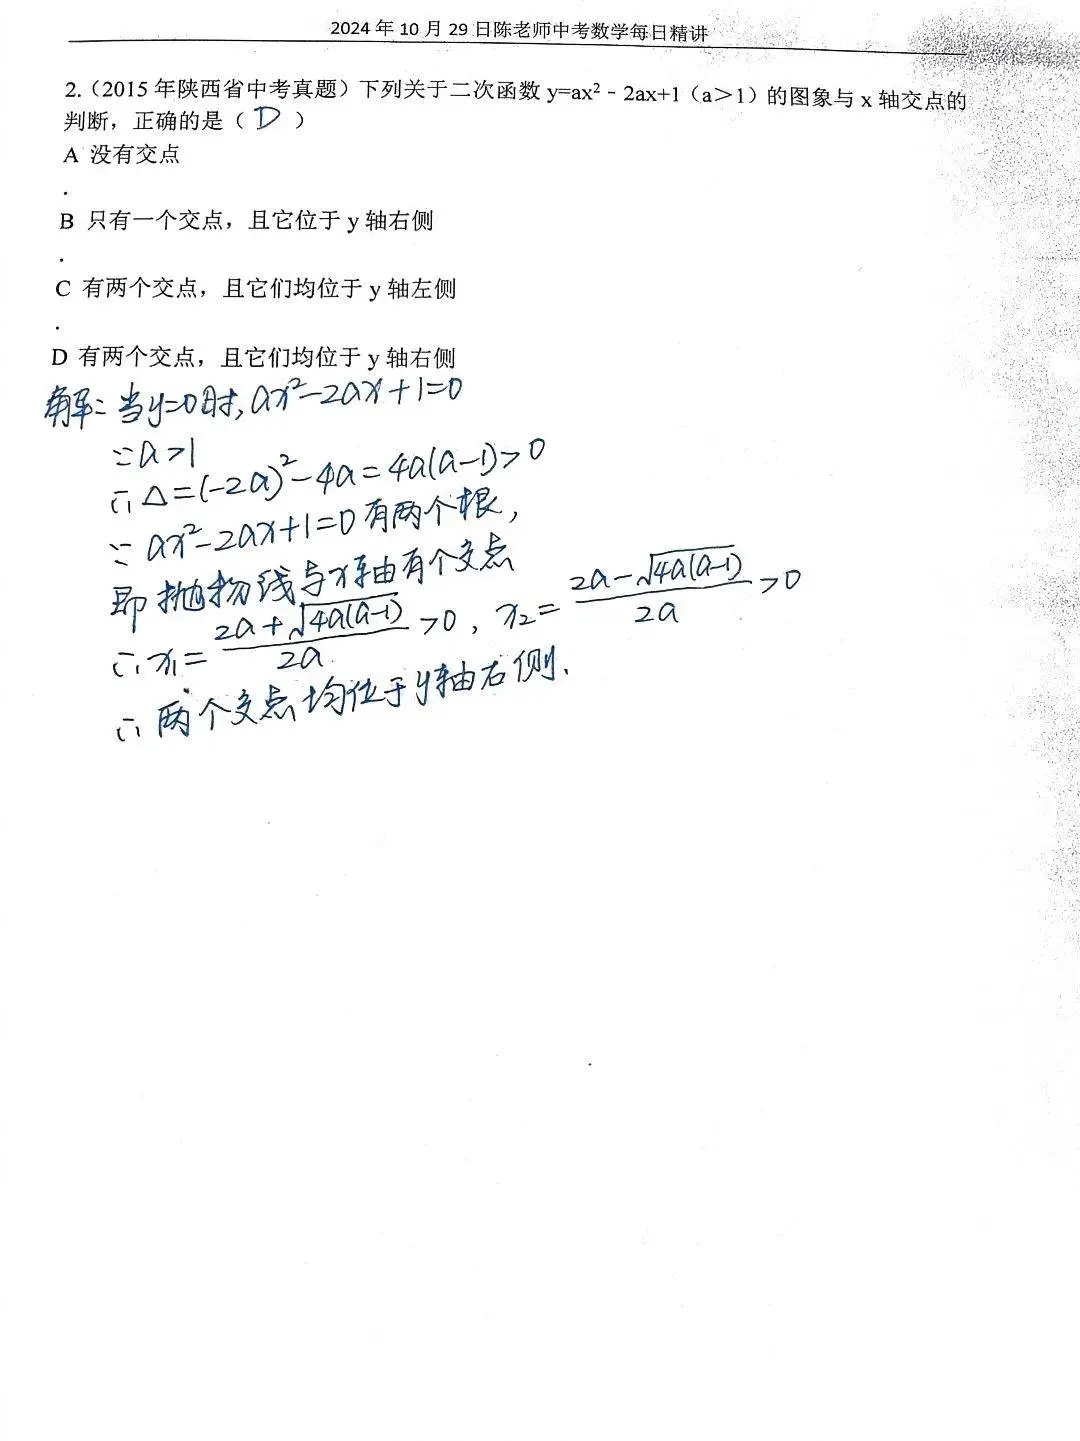 2024 年 10 月 29 日陈老师中考数学每日精讲
2.（2015 年陕西省中考真题）下列关于二次函数 y=ax²﹣2ax+1（a＞1）的图象与 x 轴交点的
判断，正确的是（ D ）
A 没有交点
.
B 只有一个交点，且它位于 y 轴右侧
.
C 有两个交点，且它们均位于 y 轴左侧
.
D 有两个交点，且它们均位于 y 轴右侧
解：当y=0时，ax²-2ax+1=0
∵a>1
∴△=(-2a)²-4a=4a(a-1)>0
∵ax²-2ax+1=0有两个根，
即抛物线与x轴有个交点
∴x₁=(2a+√(4a(a-1)))/2a>0，x₂=(2a-√(4a(a-1)))/2a>0
∴两个交点均位于y轴右侧.